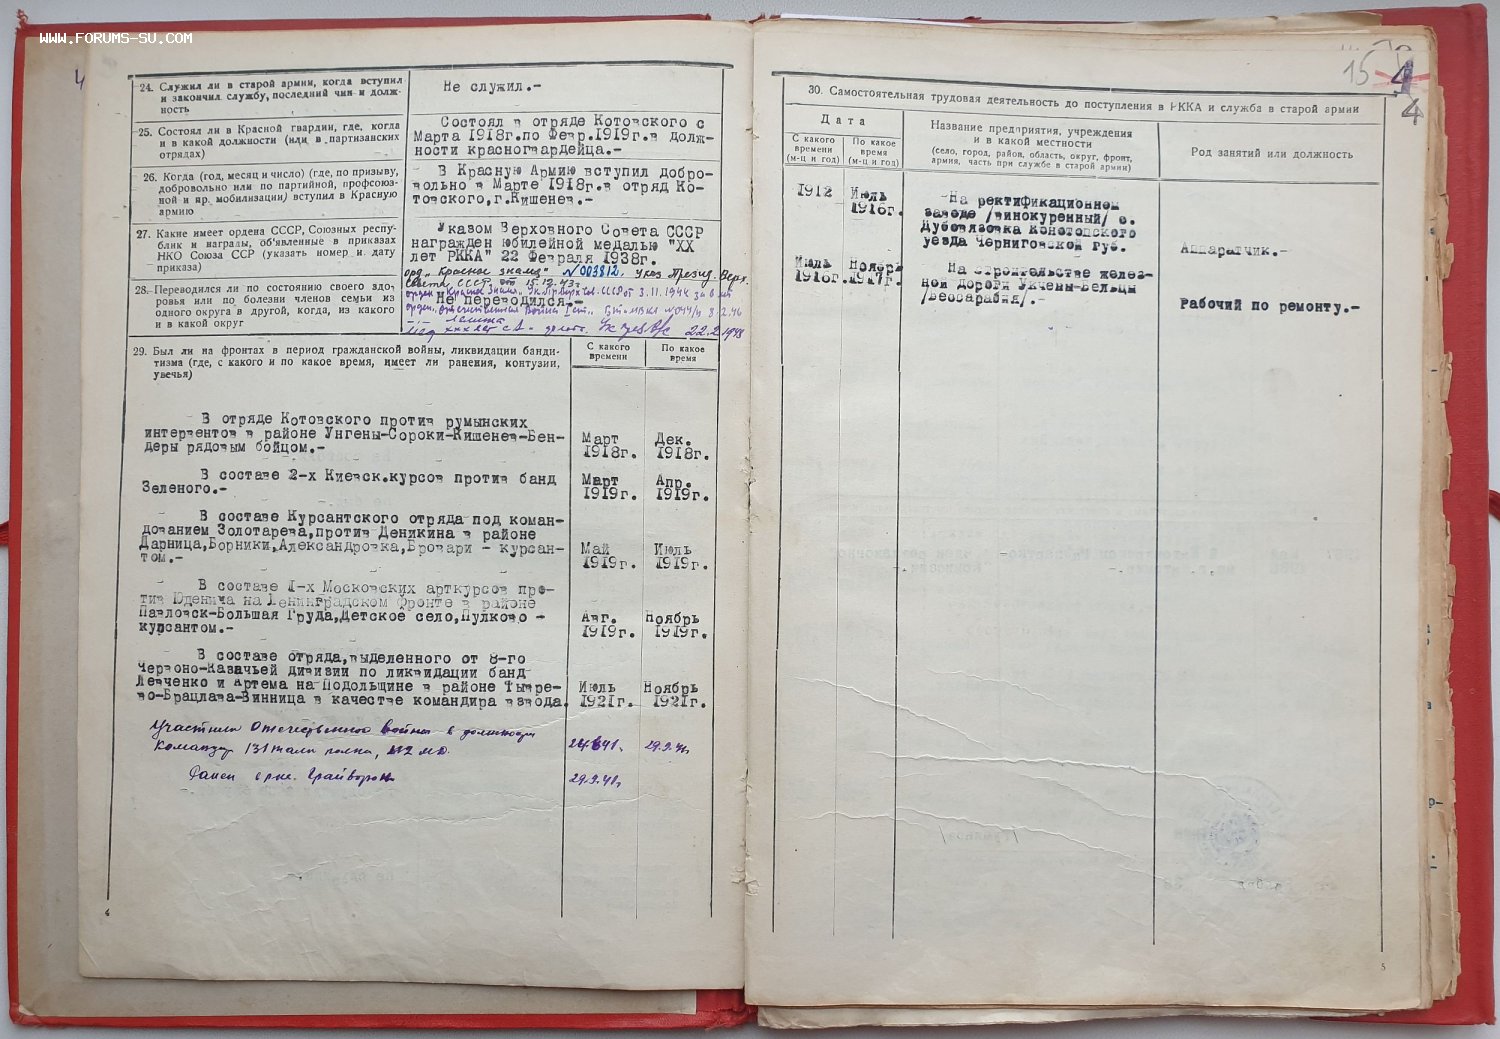 WWW.FORUMS-SU.COM
4
24. Служил ли в старой армии, когда вступил
и закончил службу, последний чин и долж-
ность
Не служил.-
25. Состоял ли в Красной гвардии, где, когда
и в какой должности (или в партизанских
отрядах)
Состоял в отряде Котовского с
Марта 1918г.по Февр.1919г.в долж-
ности красногвардейца.-
26. Когда (год, месяц и число) (где, по призыву,
добровольно или по партийной, профсоюз-
ной и пр. мобилизации) вступил в Красную
армию
В Красную Армию вступил добро-
вольно в Марте 1918г.в отряд Ко-
товского, г.Кишенев.-
27. Какие имеет ордена СССР, Союзных респу-
блик и награды, об'явленные в приказах
НКО Союза ССР (указать номер и дату
приказа)
Указом Верховного Совета СССР
награжден юбилейной медалью "XX
лет РККА" 22 Февраля 1938г.
орд. "Красное знамя" №003812. Указ Презид. Верх.
Совета СССР от 15.12.43г.
28. Переводился ли по состоянию своего здо-
ровья или по болезни членов семьи из
одного округа в другой, когда, из какого
и в какой округ
Не переводился.-
22.2.1948
29. Был ли на фронтах в период гражданской войны, ликвидации банди-
тизма (где, с какого и по какое время, имеет ли ранения, контузии,
увечья)
С какого
времени
По какое
время
В отряде Котовского против румынских
интервентов в районе Унгены-Сороки-Кишенев-Бен-
деры рядовым бойцом.-
Март
1918г.
Дек.
1918г.
В составе 2-х Киевск.курсов против банд
Зеленого.-
Март
1919г.
Апр.
1919г.
В составе Курсантского отряда под коман-
дованием Золотарева,против Деникина в районе
Дарница,Борники,Александровка,Бровари - курсан-
том.-
Май
1919г.
Июль
1919г.
В составе 1-х Московских арткурсов про-
тив Юденича на Ленинградском фронте в районе
Павловск-Большая Груда,Детское село,Пулково -
курсантом.-
Авг.
1919г.
Ноябрь
1919г.
В составе отряда,выделенного от 8-го
Червоно-Казачьей дивизии по ликвидации банд
Левченко и Артема на Подольщине в районе Тывре-
во-Брацлава-Винница в качестве командира взвода.
Июль
1921г.
Ноябрь
1921г.
Участник Отечественной войны в должности
Командир 131 полка,
29.9.41г.
Ранен
29.9.41г.
4
15
4
4
30. Самостоятельная трудовая деятельность до поступления в РККА и служба в старой армии
Дата
С какого
времени
(м-ц и год)
По какое
время
(м-ц и год)
Название предприятия, учреждения
и в какой местности
(село, город, район, область, округ, фронт,
армия, часть при службе в старой армии)
Род занятий или должность
1912
Июль
1916г.
На ректификационном
заводе /винокуренный/ с.
Дубовязовка Конотопского
уезда Черниговской губ.
Аппаратчик.-
Июль
1916г.
Ноябрь
1917г.
На строительстве желез-
ной дороги Укчены-Бельцы
/Бессарабия/.-
Рабочий по ремонту.-
5